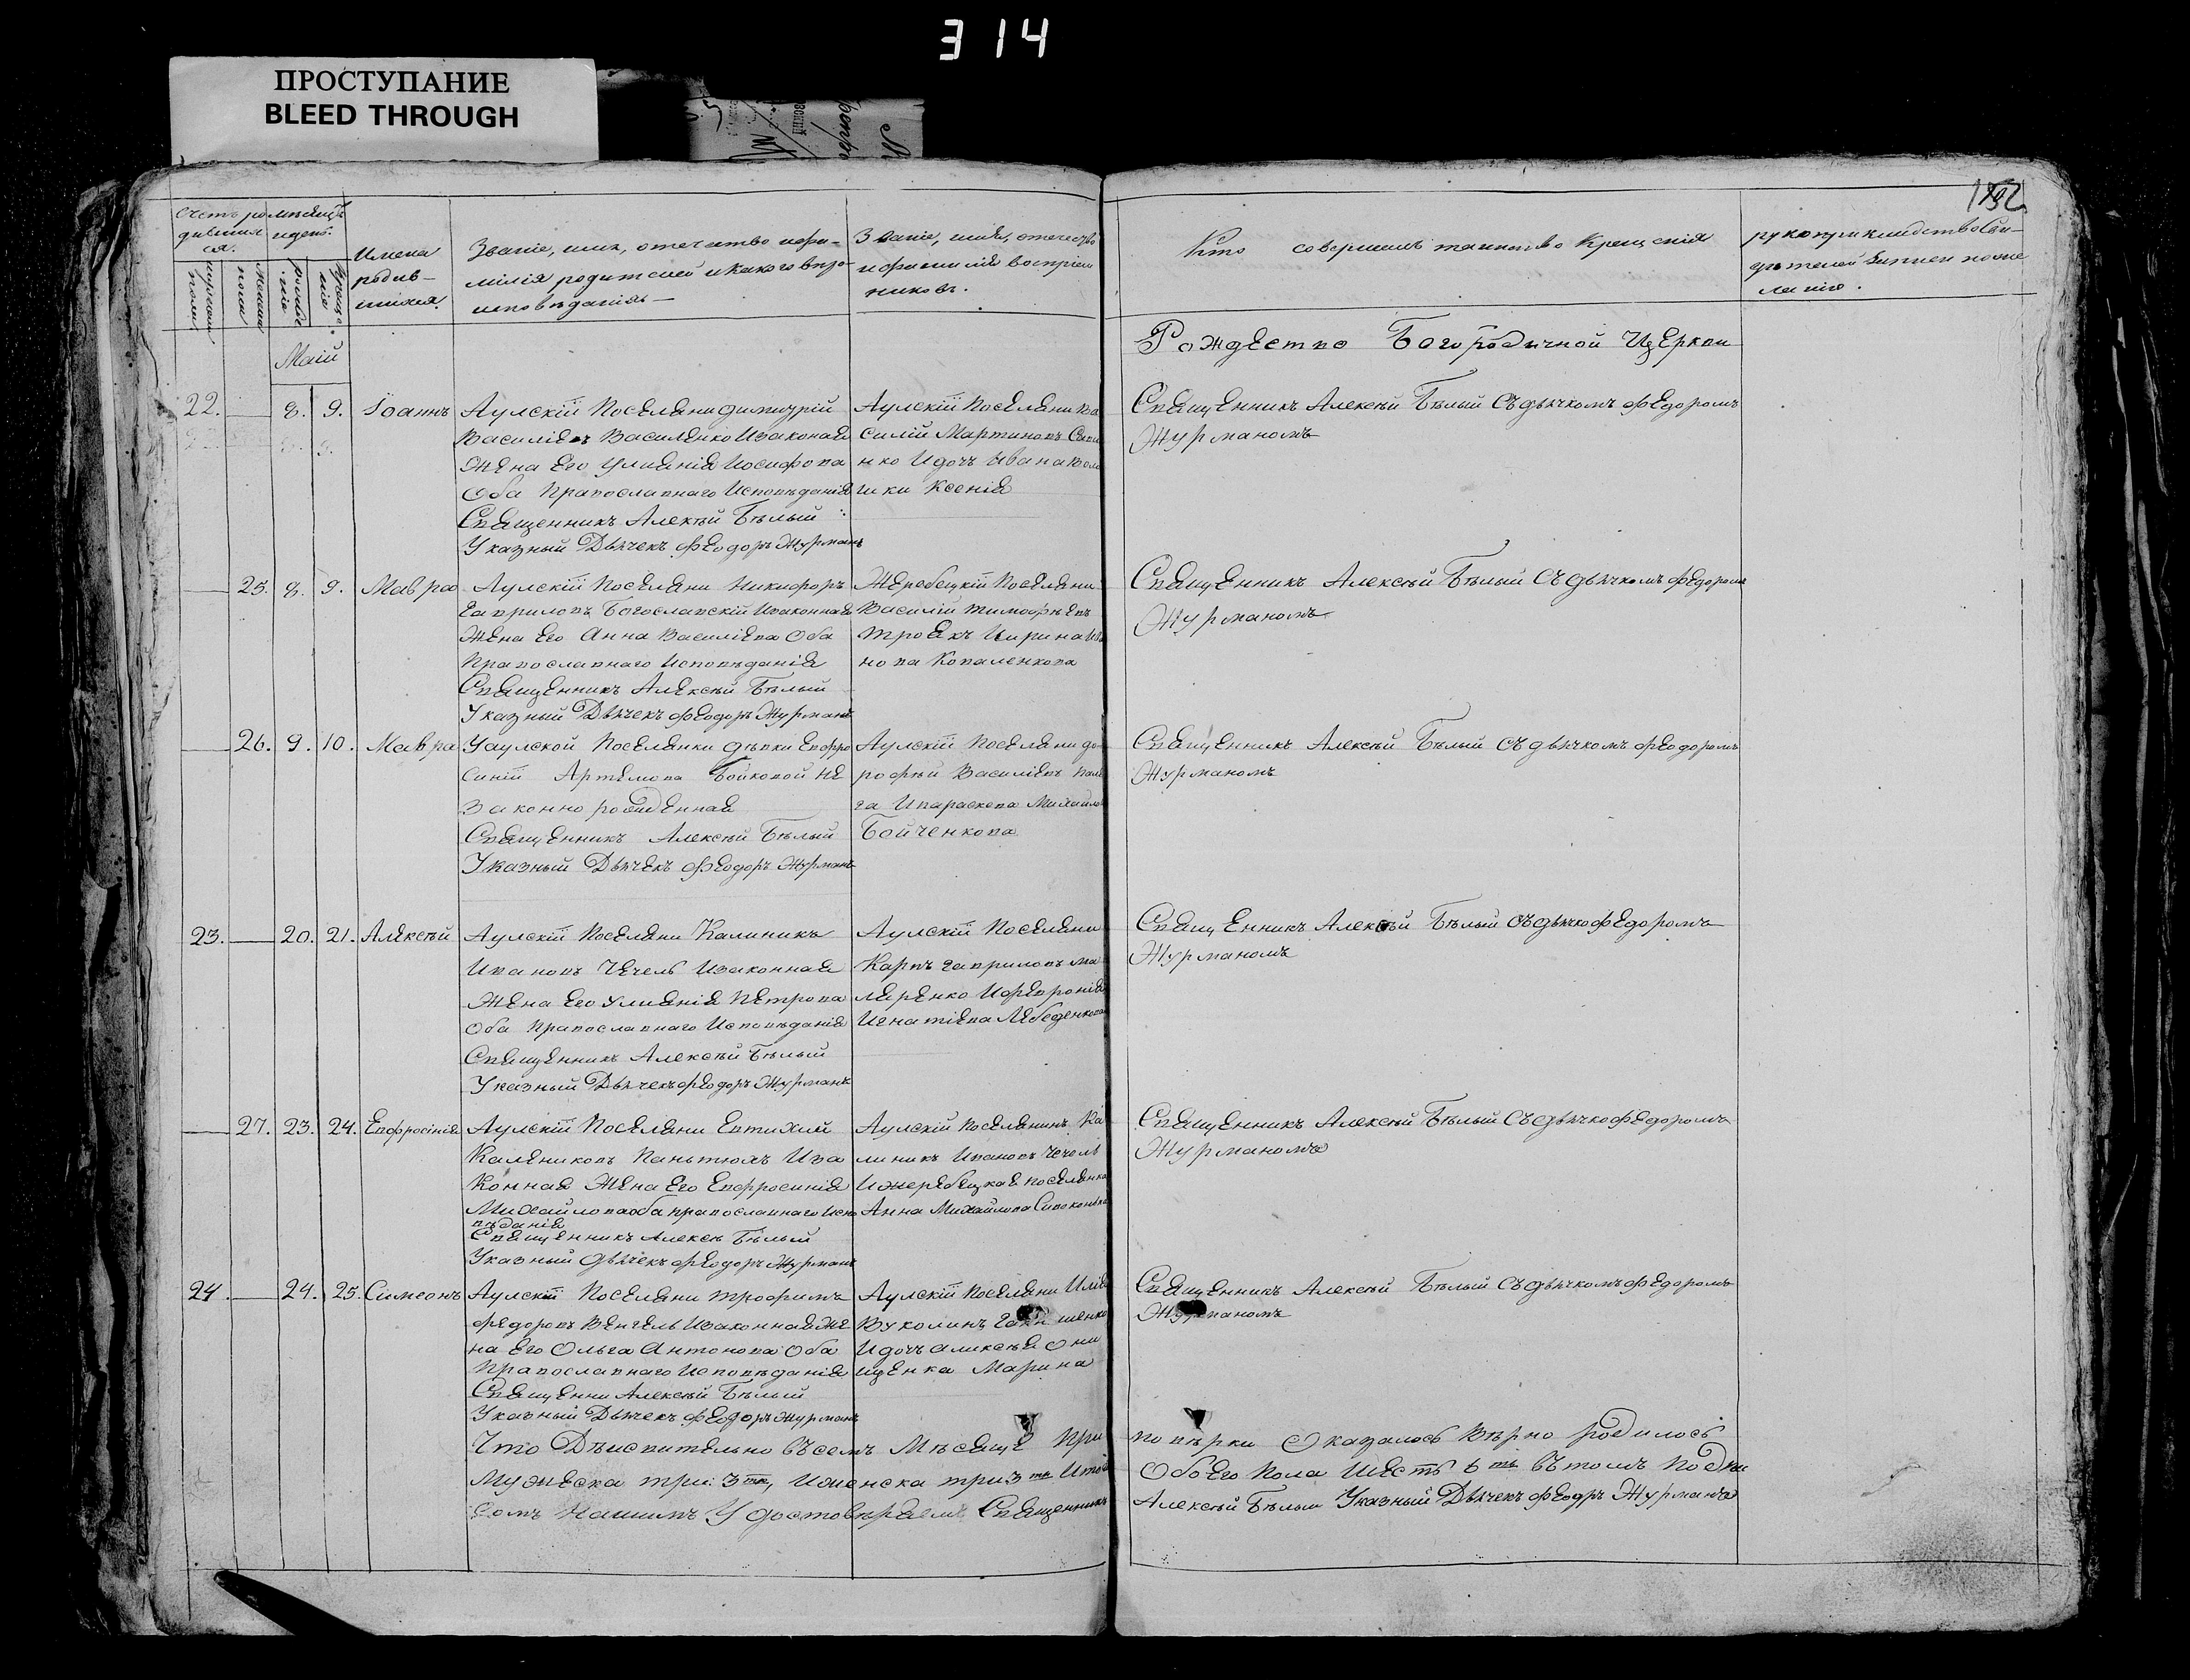 314
ПРОСТУПАНИЕ
BLEED THROUGH
132
Счетъ ро
дившихъ
ся.
мѣсяцъ
и день.
Имена
родив-
шихся.
Званіе, имя, отечество и фа-
милія родителей и какого вѣро-
исповѣданія —
Званіе, имя, отечество
и фамилія воспріем
никовъ.
Кто совершалъ таинство Крещенія
рукоприкладство сви-
дѣтелей записи по же
ланію.
Маій
Рождество Богородичной Церкви
22. — 8. 9. Іоаннъ
Аулскій Поселяни Димитрій
Василіевъ Василенко Изаконная
Жена Его Улиянія Иосифова
Оба Православнаго Исповѣданія
Священникъ Алексѣй Бѣлый
Указный Дьячекъ Феодоръ Журманъ
Аулскій Поселяни Ва
силій Мартиновъ
нко И дочь Ивана
Ксенія
Священникъ Алексѣй Бѣлый Съ дьячкомъ Федоромъ
Журманомъ
— 25. 8. 9. Мавра
Аулскій Поселяни Никифоръ
Гавриловъ Богославскій Изаконная
Жена Его Анна Василіева Оба
Православнаго Исповѣданія
Священникъ Алексѣй Бѣлый
Указный Дьячекъ Феодоръ Журманъ
Жеребецкій Поселяни
Василій Тимофѣевъ
Троякъ И Ирина Ива
нова Коваленкова
Священникъ Алексѣй Бѣлый Съ дьячкомъ Федоромъ
Журманомъ
— 26. 9. 10. Мавра
У аулской Поселянки дѣвки Евфро
синій Артемова Бойковой Не
законно рожденная
Священникъ Алексѣй Бѣлый
Указный Дьячекъ Феодоръ Журманъ
Аулскій Поселяни До
рофѣй Василіевъ
га И параскева Михайло
Бойченкова
Священникъ Алексѣй Бѣлый Съ дьячкомъ Феодоромъ
Журманомъ
23. — 20. 21. Алексѣй
Аулскій Поселяни Калиникъ
Ивановъ Чечель Изаконная
Жена Его Улиянія Петрова
Оба Православнаго Исповѣданія
Священникъ Алексѣй Бѣлый
Указный Дьячекъ Феодоръ Журманъ
Аулскій Поселяни
Карпъ Гавриловъ Ма
леренко И Февронія
Игнатіева Лебеденкова
Священникъ Алексѣй Бѣлый Съ дьячко Федоромъ
Журманомъ
— 27. 23. 24. Евфросінія
Аулскій Поселяни Евтихій
Каленниковъ Паньтюхъ Иза
Конная Жена Его Евфросинія
Михайлова оба православнаго Испо
вѣданія
Священникъ Алексѣ Бѣлый
Указный дьячекъ Феодоръ Журманъ
Аулскій Поселянинъ Ка
линикъ Ивановъ Чечель
И жеребецкая поселянка
Анна Михайлова
Священникъ Алексѣй Бѣлый Съ дьячко Федоромъ
Журманомъ
24. — 24. 25. Симеонъ
Аулскій Поселяни Трофимъ
Федоровъ Венгель Изаконная Же
на Его Ольга Антонова Оба
Православнаго Исповѣданія
Священни Алексѣй Бѣлый
Указный Дьячекъ Феодоръ Журманъ
Аулскій Поселяни Илія
Вуколинъ
И дочь Алексѣя Они
щенка Марина
Священникъ Алексѣй Бѣлый Съ дьячкомъ Федоромъ
Журманомъ
Что Дѣиствительно въ семъ Мѣсяцѣ При повѣрки Оказалось Вѣрно родилось
Мужеска три: 3 ти, И женска три 3 ти Итого Обоего Пола Шесть 6 ть въ томъ Подпи
сомъ Нашимъ Удостовѣряемъ Священникъ Алексѣй Бѣлый Указный Дьячекъ Феодръ Журманъ